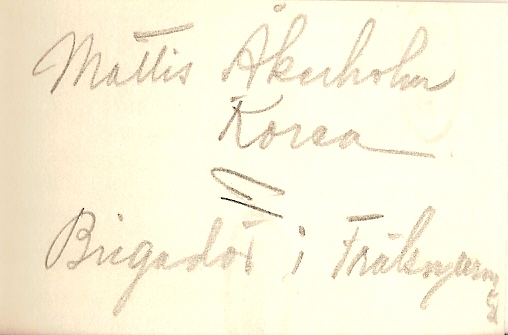 Mattis Åkerholm
Korea
Brigadör i Frälsnjarmén